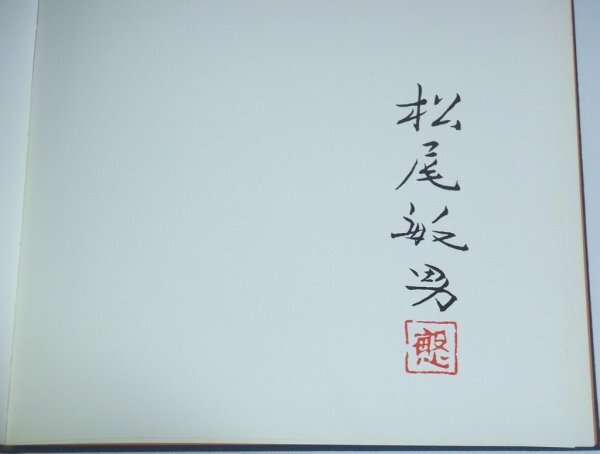 松尾敏男